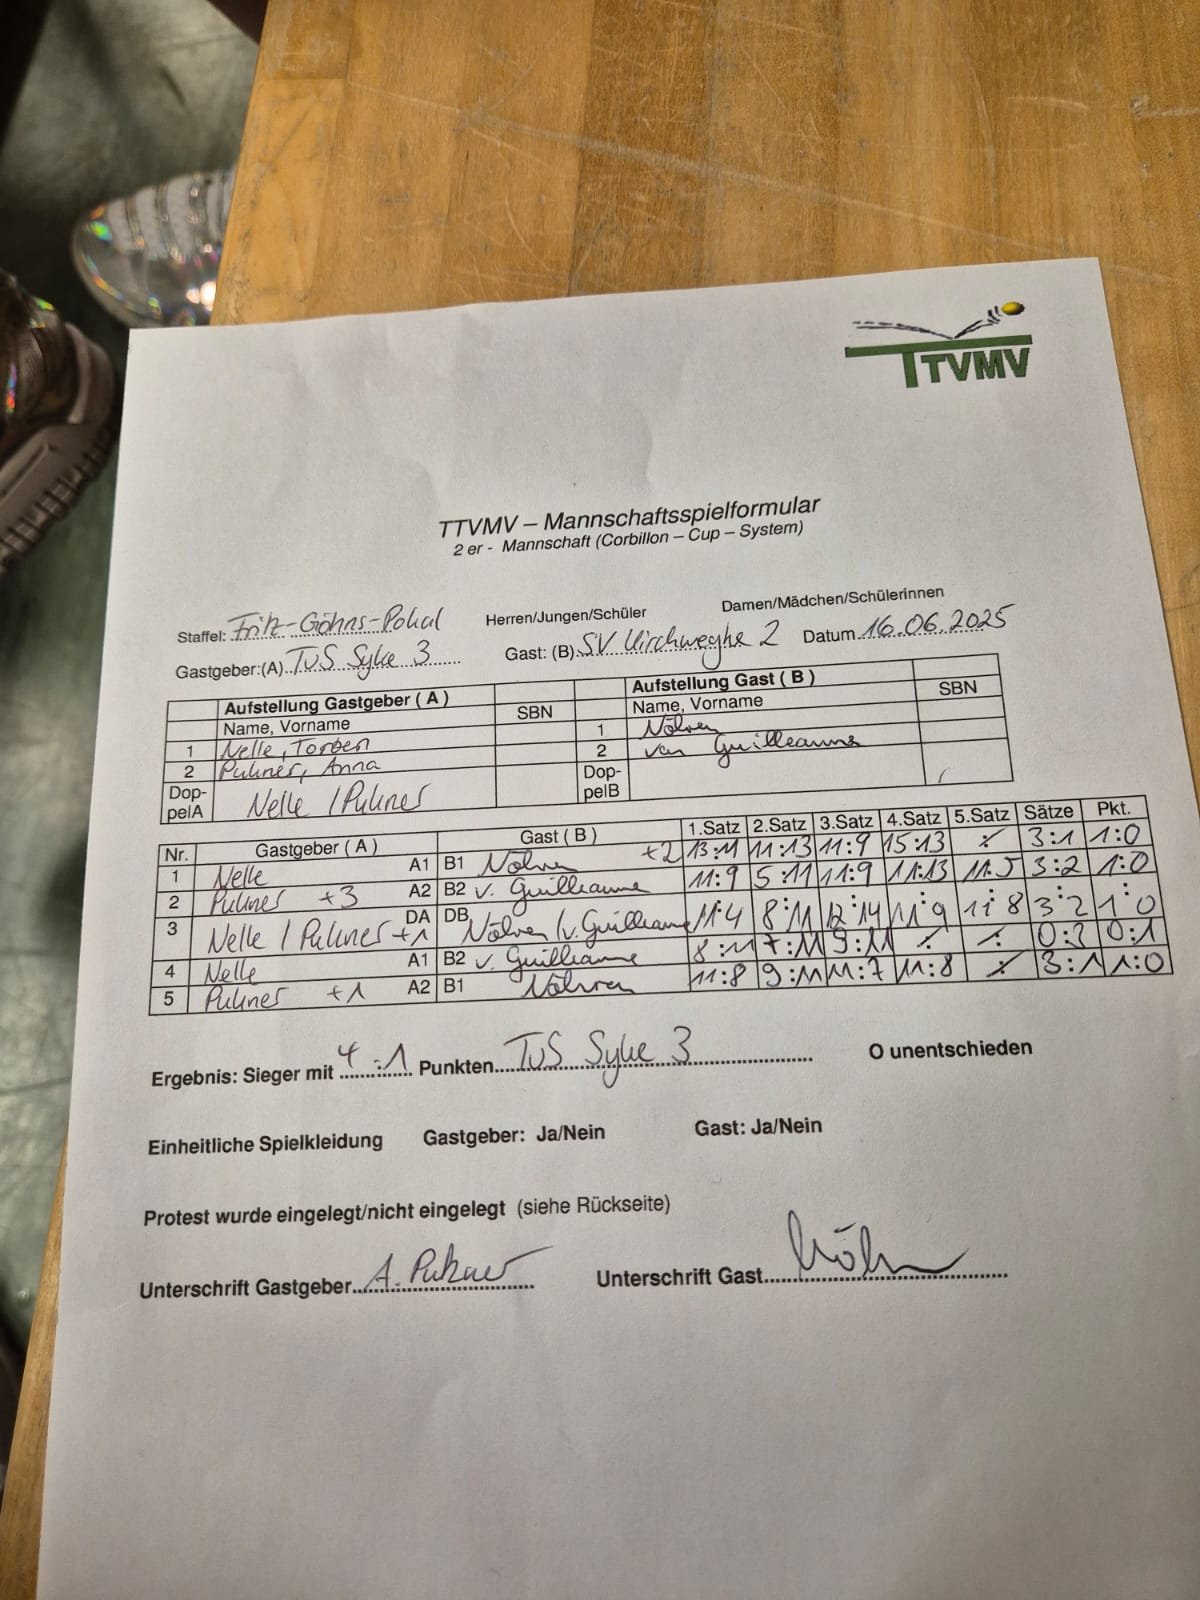 TTVMV
TTVMV – Mannschaftsspielformular
2 er - Mannschaft (Corbillon – Cup – System)
Staffel: Fritz-Göhns-Pokal Herren/Jungen/Schüler Damen/Mädchen/Schülerinnen
Gastgeber:(A) TuS Syke 3 Gast: (B) SV Kirchweyhe 2 Datum 16.06.2025
Aufstellung Gastgeber ( A ) Aufstellung Gast ( B )
Name, Vorname SBN Name, Vorname SBN
1 Nelle, Torben 1
2 Pukner, Anna 2 von Guilleaume
Dop-pelA Nelle / Pukner Dop-pelB
Nr. Gastgeber ( A ) Gast ( B ) 1.Satz 2.Satz 3.Satz 4.Satz 5.Satz Sätze Pkt.
1 Nelle A1 B1 +2 13:11 11:13 11:9 15:13 ⁒ 3:1 1:0
2 Pukner +3 A2 B2 v. Guilleaume 11:9 5:11 11:9 11:13 11:5 3:2 1:0
3 Nelle / Pukner +1 DA DB / v. Guilleaume 11:4 8:11 12:14 11:9 11:8 3:2 1:0
4 Nelle A1 B2 v. Guilleaume 8:11 7:11 9:11 ⁒ ⁒ 0:3 0:1
5 Pukner +1 A2 B1 11:8 9:11 11:7 11:8 ⁒ 3:1 1:0
Ergebnis: Sieger mit 4:1 Punkten TuS Syke 3 O unentschieden
Einheitliche Spielkleidung Gastgeber: Ja/Nein Gast: Ja/Nein
Protest wurde eingelegt/nicht eingelegt (siehe Rückseite)
Unterschrift Gastgeber A. Pukner Unterschrift Gast